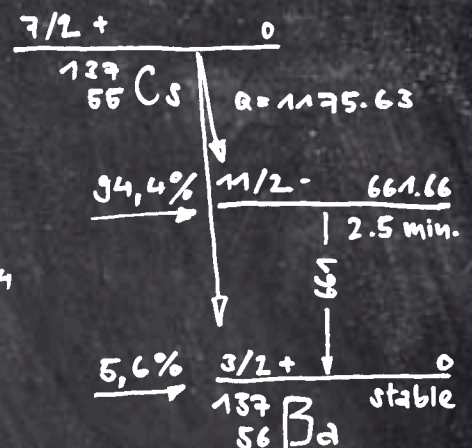 7/2 + 0
137
55 Cs Q = 1175.63
94,4% 11/2 - 661.66
2.5 min.
661
4
5,6% 3/2 + 0
stable
137
56 Ba